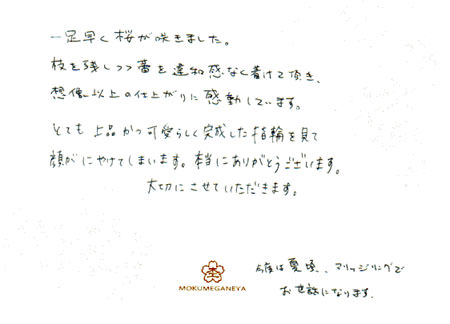 一足早く桜が咲きました。
枝を残しつつ蕾を違和感なく着けて頂き、
想像以上の仕上がりに感動しています。
とても上品かつ可愛らしく完成した指輪を見て
顔がにやけてしまいます。本当にありがとうございます。
大切にさせていただきます。
今度は夏頃、マリッジリングで
お世話になります。
MOKUMEGANEYA